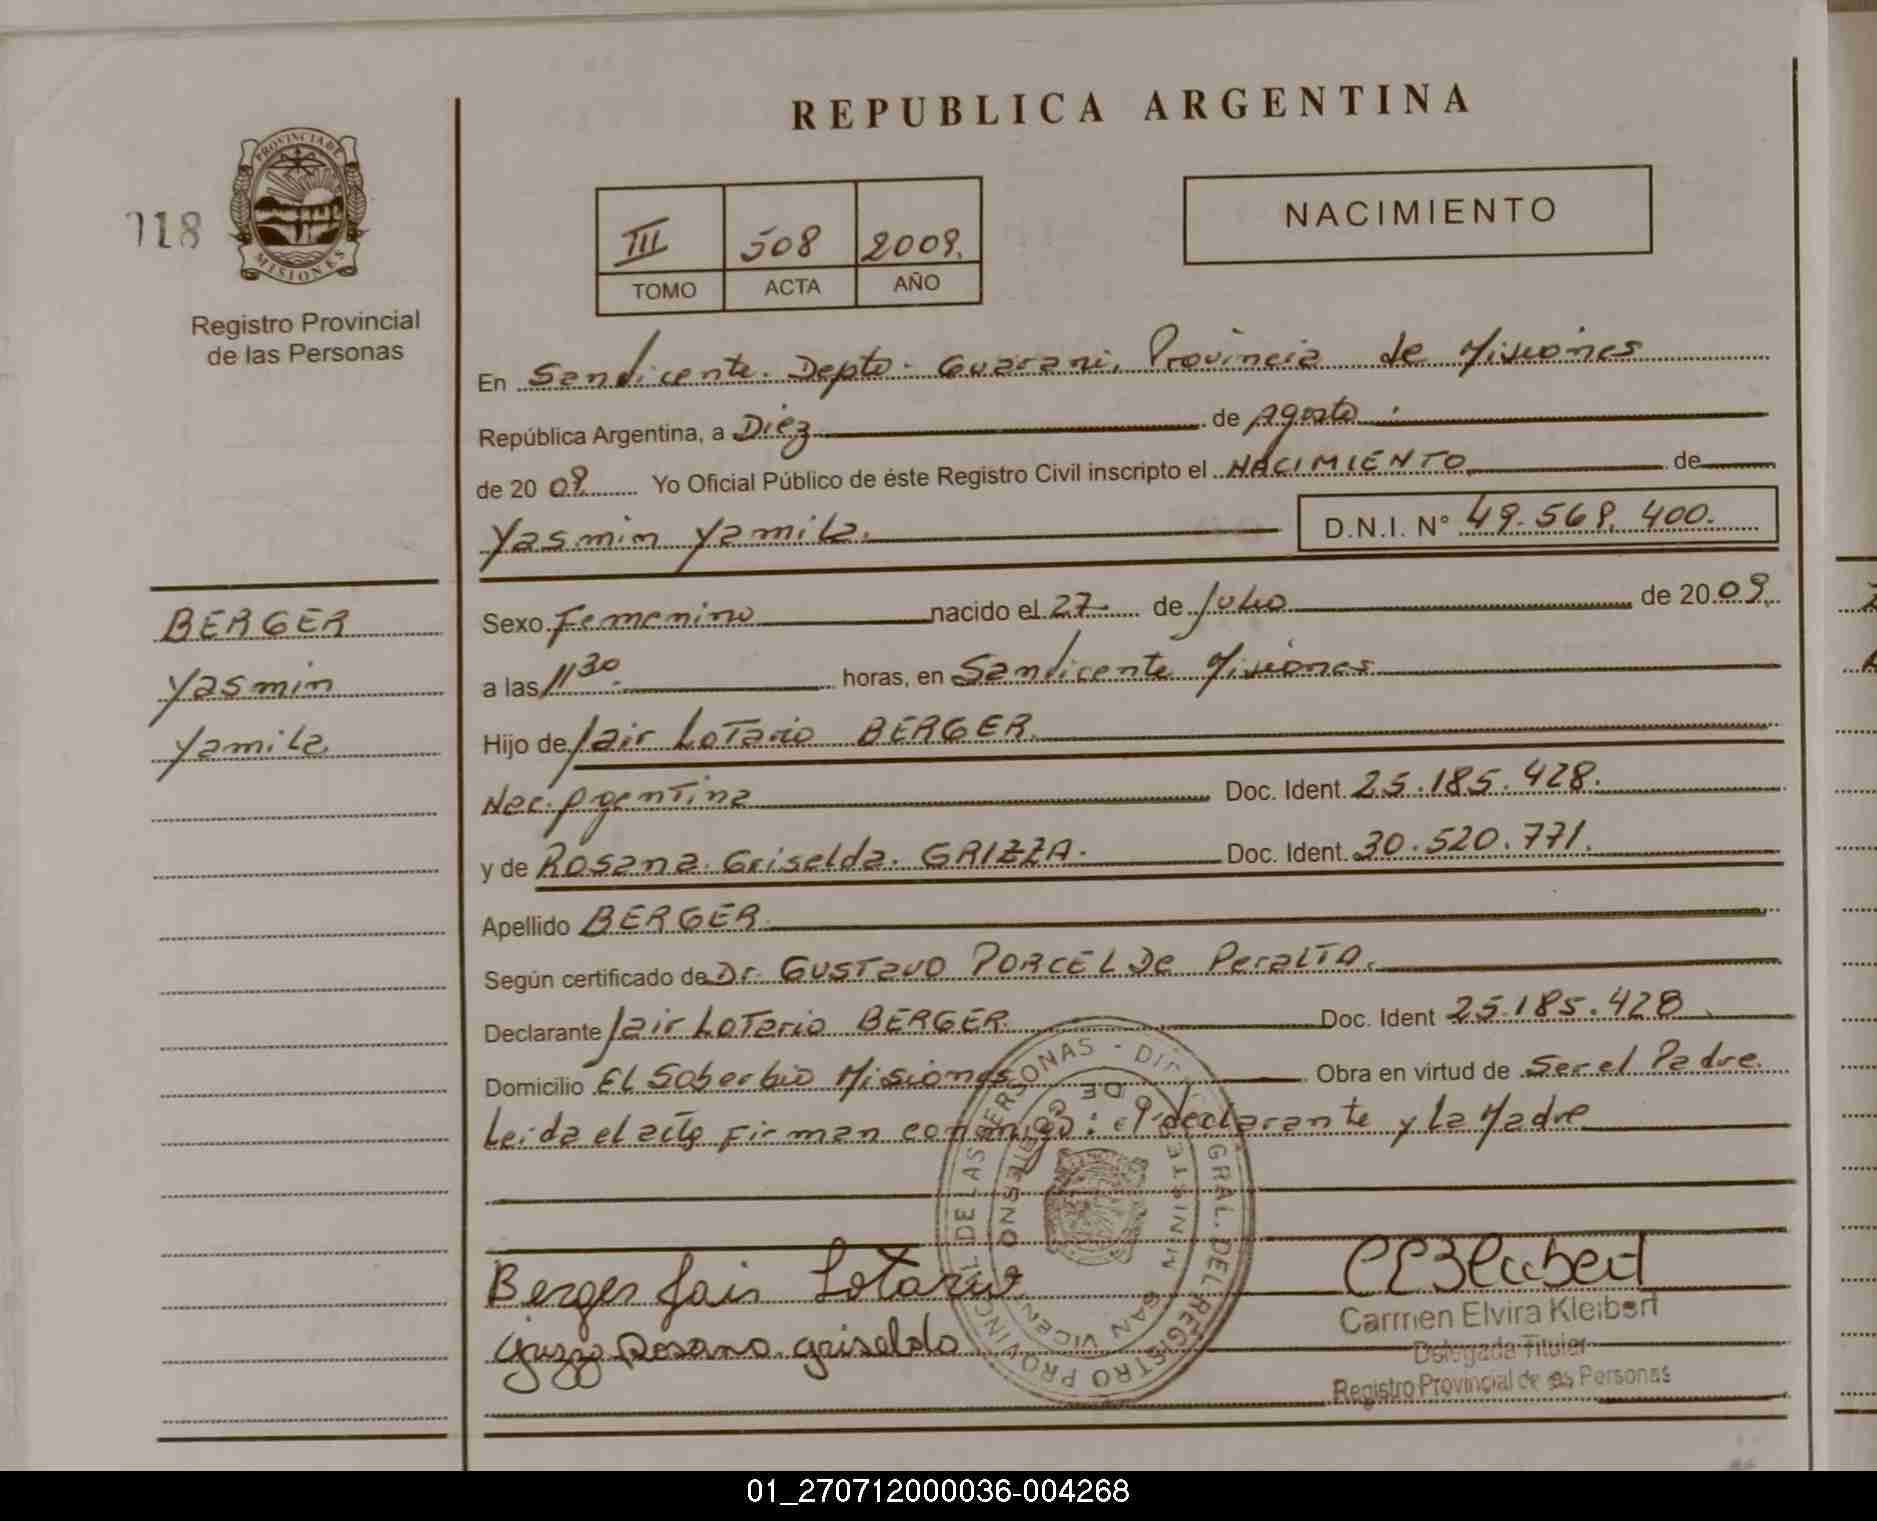 REPUBLICA ARGENTINA
PROVINCIA DE
MISIONES
118
Registro Provincial
de las Personas
III 508 2009.
TOMO ACTA AÑO
NACIMIENTO
En San Vicente. Depto. Guarani, Provincia de Misiones
República Argentina, a Diez de Agosto
de 20 09 Yo Oficial Público de éste Registro Civil inscripto el NACIMIENTO de
Yasmin Yamila. D.N.I. N° 49.568.400.
BERGER
Yasmin
Yamila
Sexo Femenino nacido el 27 de Julio de 20 09.
a las 11 30 horas, en San Vicente Misiones
Hijo de Jair Lotario BERGER.
Nac. Argentina Doc. Ident. 25.185.428.
y de Rosana Griselda. GRIZZA. Doc. Ident. 30.520.771.
Apellido BERGER
Según certificado de Dr. GUSTAVO PORCEL De PeralTA.
Declarante Jair Lotario BERGER Doc. Ident 25.185.428
Domicilio El Soberbio Misiones Obra en virtud de Ser el Padre.
Leida el acta firman conmigo: el declarante y La Madre
Berger Jair Lotario
Rosana griselda
REGISTRO PROVINCIAL DE LAS PERSONAS - DIR. GRAL. DEL
SAN VICENTE
Carmen Elvira Kleibert
Delegada Titular
Registro Provincial de las Personas
01_270712000036-004268